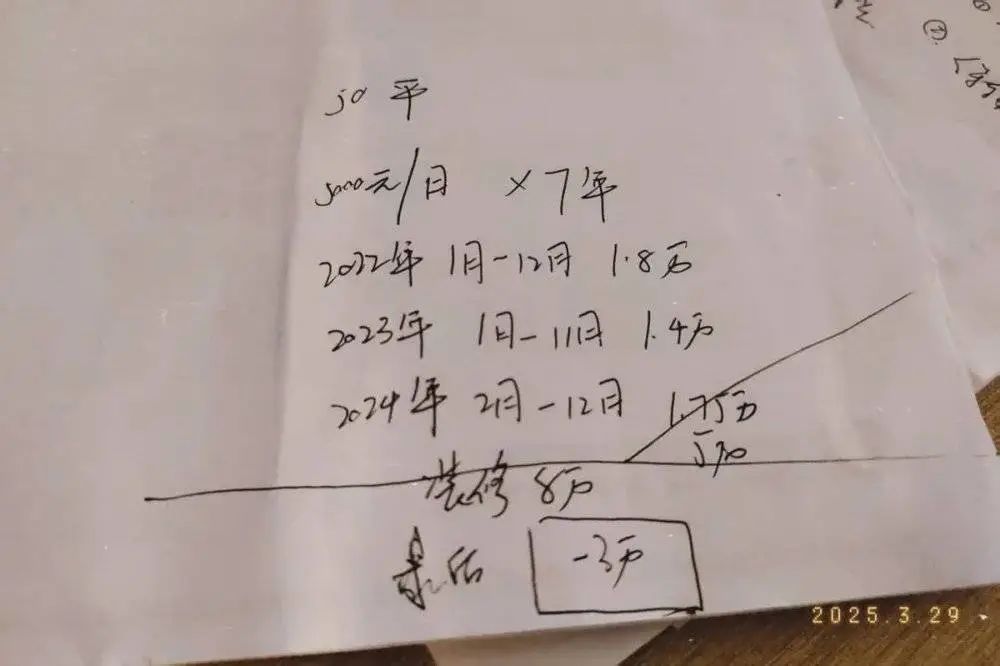 50平
5000元/日 ×7年
2022年 1月-12月 1.8万
2023年 1月-11月 1.4万
2024年 2月-12月 1.75万
装修 8万
最后 -3万
①
2025.3.29